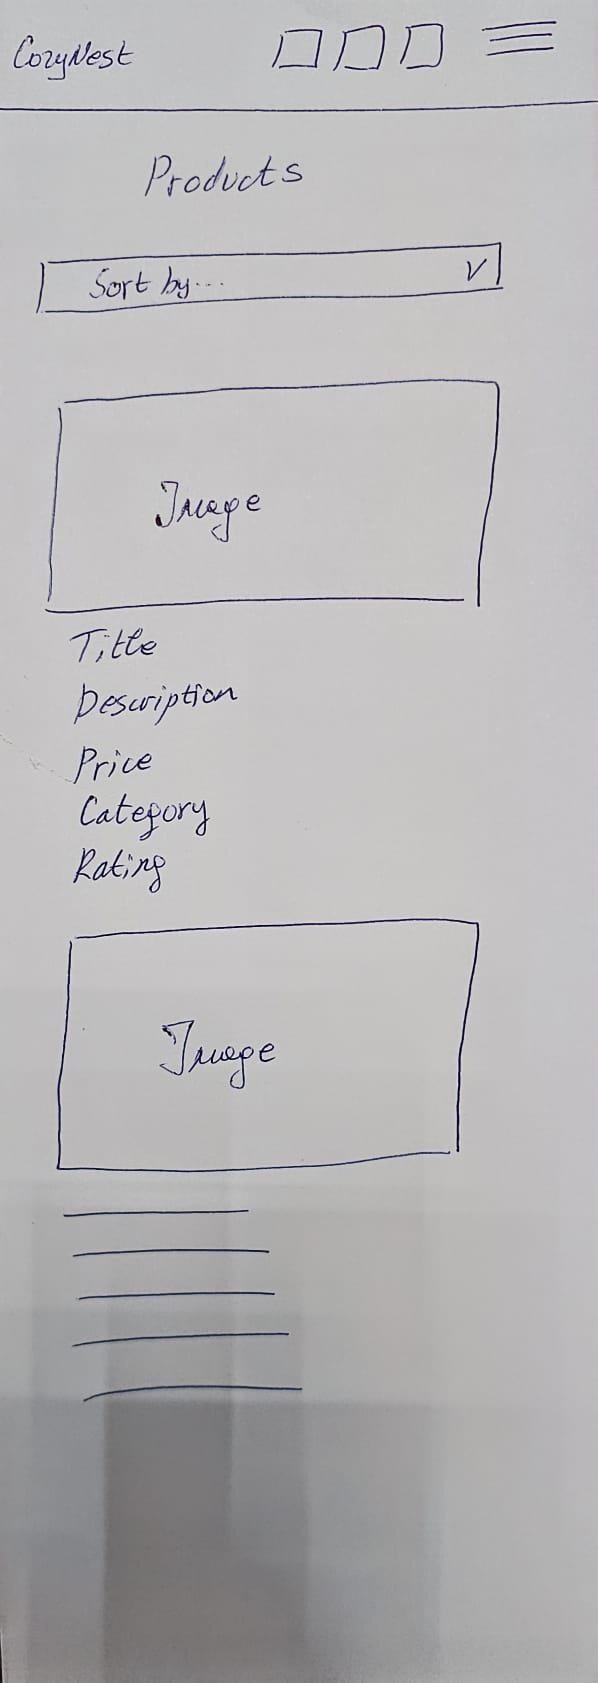 CozyNest
Products
Sort by...
Image
Title
Description
Price
Category
Rating
Image